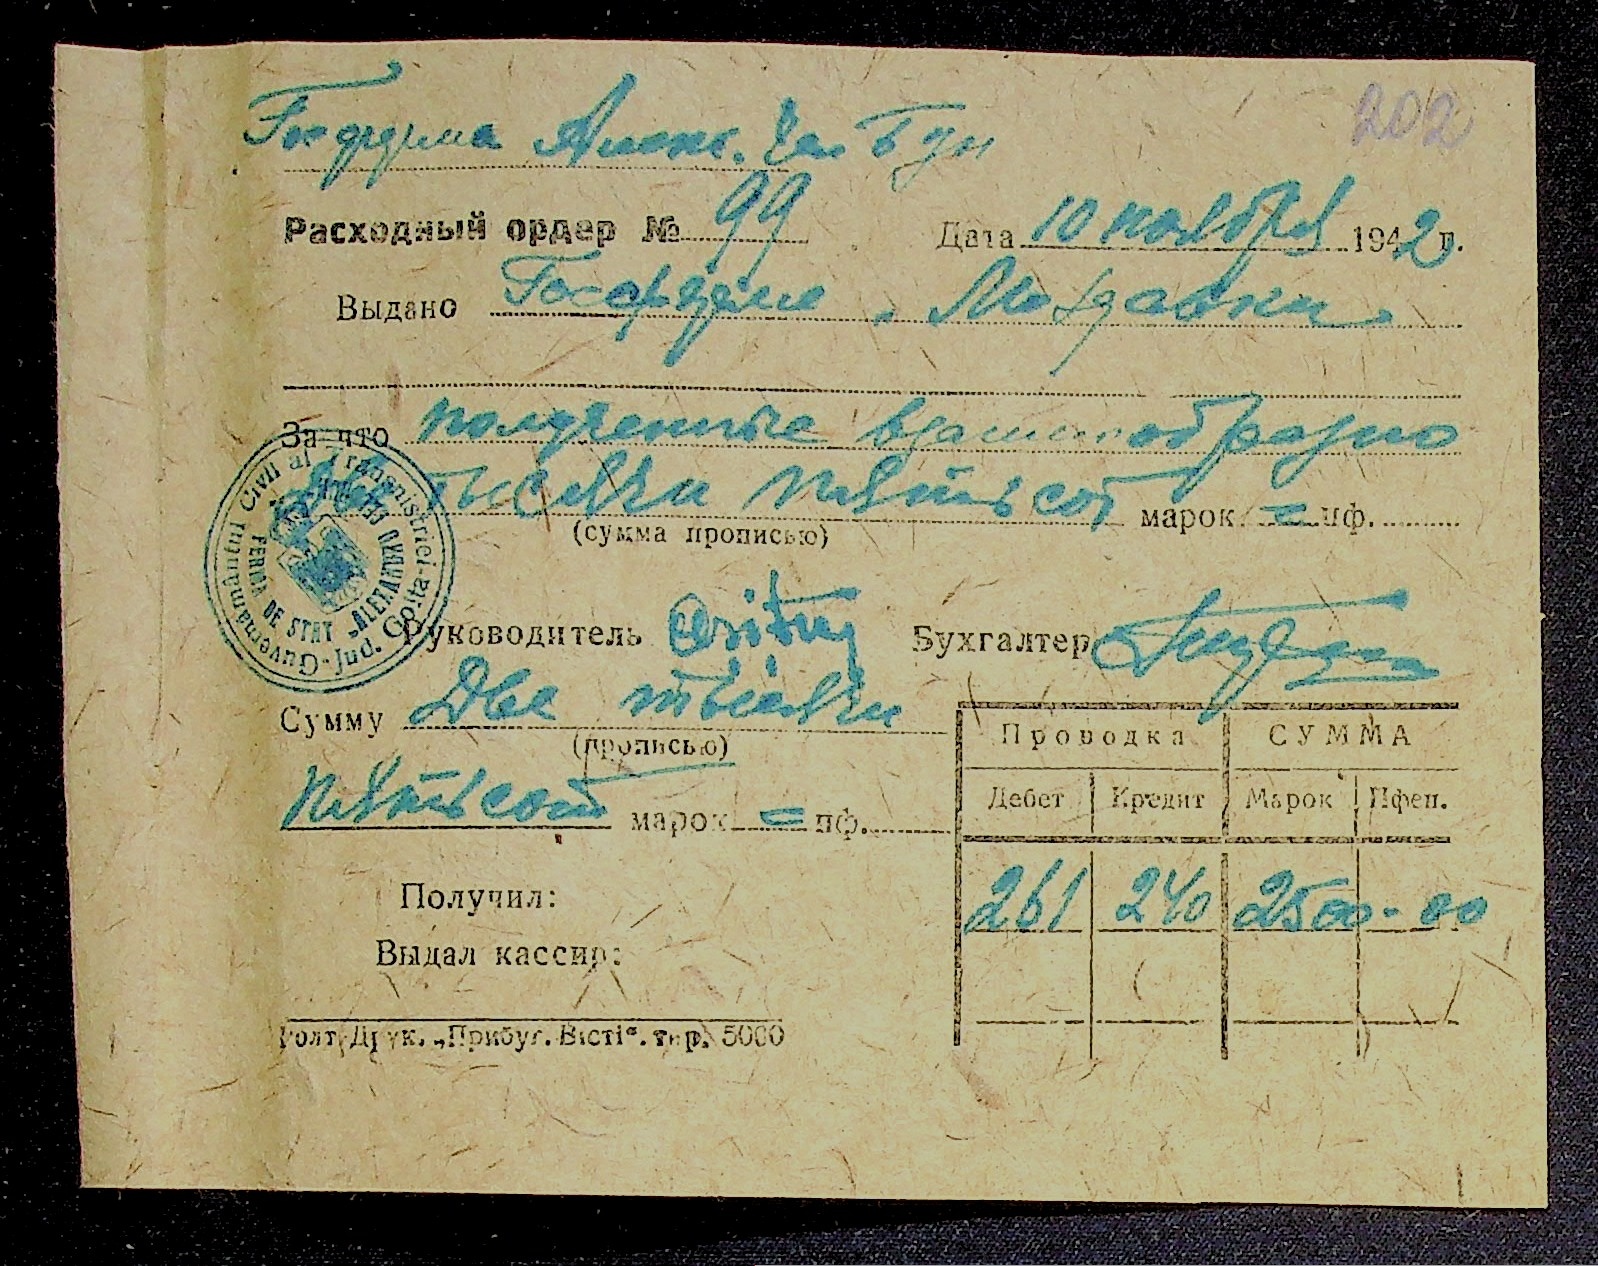 202
Госферма Алекс. чел Бун
Расходный ордер № 99 Дата 10 ноября 1942 г.
Выдано Госферме "Молдавка"
За что полученные взаимообразно
Две тысячи пятьсот марок = пф.
(сумма прописью)
Guvernământul Civil al Transnistriei-Jud. Golta-
FERMA DE STAT „ALEXANDRU CEL BUN"
Руководитель Бухгалтер
Сумму Две тысячи
(прописью)
пятьсот марок = пф.
Проводка СУММА
Дебет Кредит Марок Пфен.
261 240 2500-00
Получил:
Выдал кассир:
Голт. Друк. „Прибуг. Вісті". тир. 5000